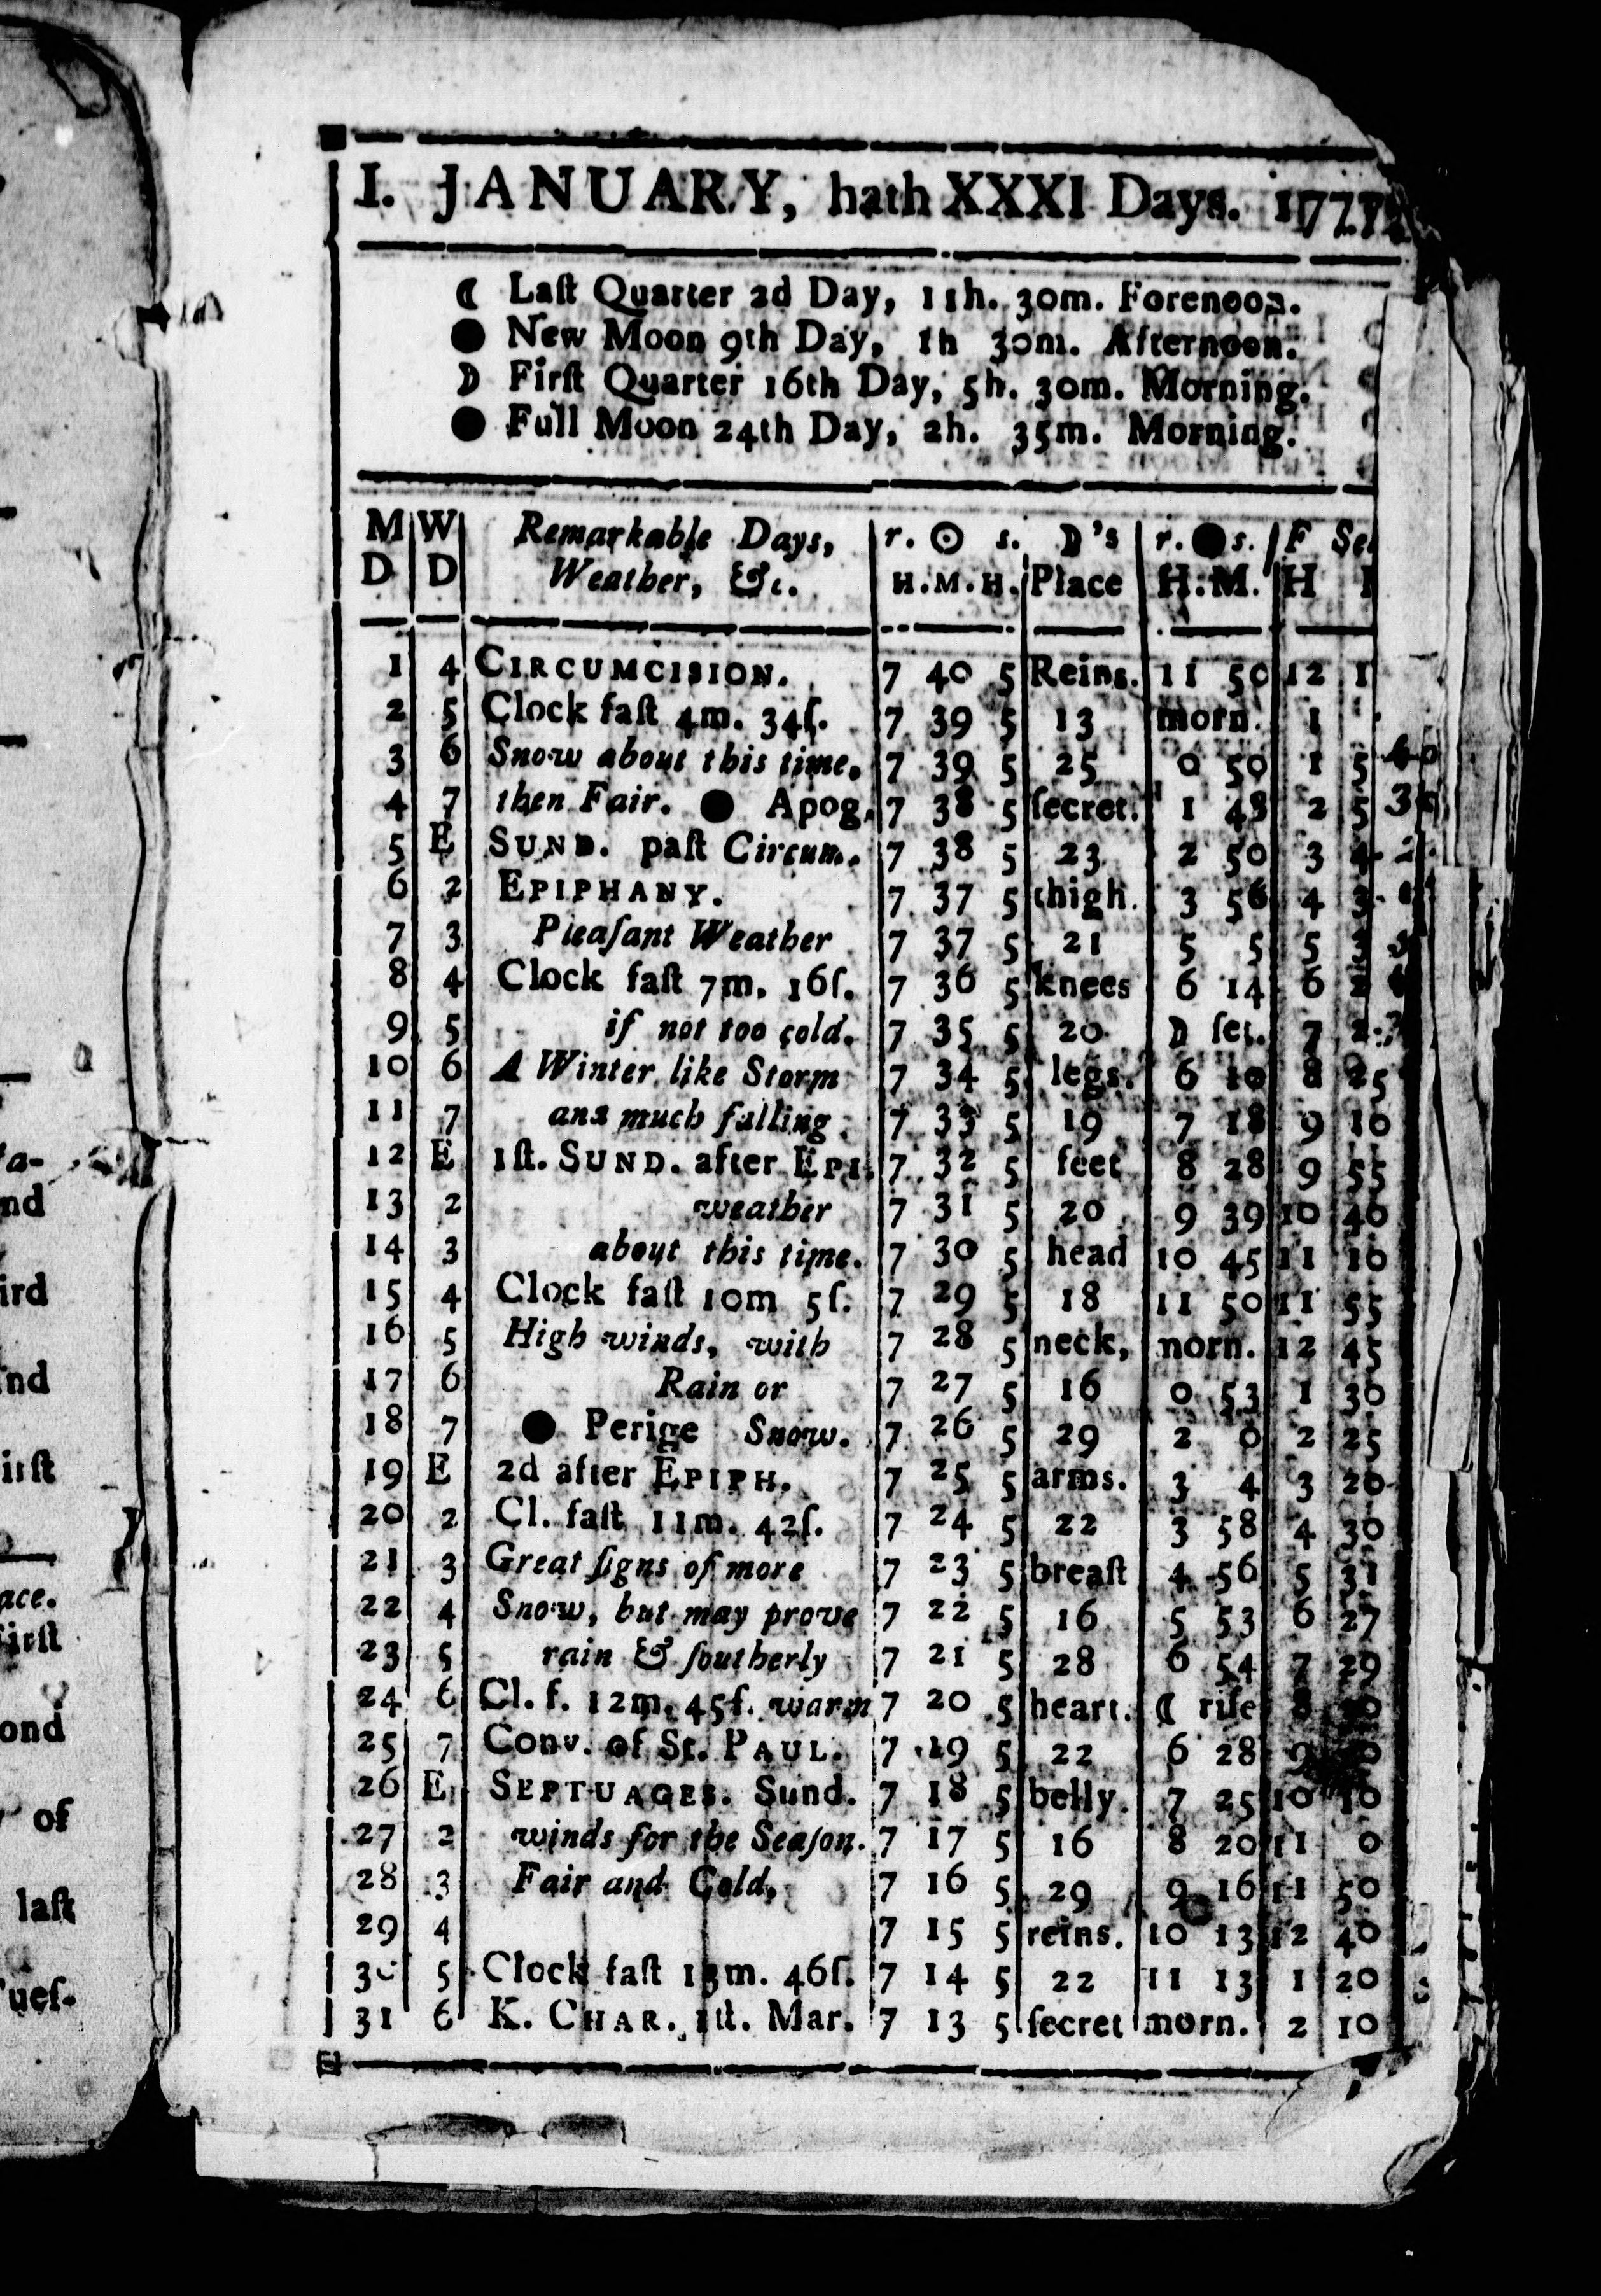 I. JANUARY, hath XXXI Days. 1777.
☾ Laſt Quarter 2d Day, 11h. 30m. Forenoon.
● New Moon 9th Day, 1h 30m. Afternoon.
☽ Firſt Quarter 16th Day, 5h. 30m. Morning.
● Full Moon 24th Day, 2h. 35m. Morning.
M W Remarkable Days, r. ☉ s. ☽'s r. ● s. F Se
D D Weather, &c. H. M. H. Place H. M. H
1 4 CIRCUMCISION. 7 40 5 Reins. 11 50 12 1
2 5 Clock faſt 4m. 34ſ. 7 39 5 13 morn. 1
3 6 Snow about this time, 7 39 5 25 0 50 1 5
4 7 then Fair. ● Apog. 7 38 5 ſecret. 1 48 2 5
5 E SUND. paſt Circum. 7 38 5 23 2 50 3 4
6 2 EPIPHANY. 7 37 5 thigh. 3 56 4 3
7 3 Pleaſant Weather 7 37 5 21 5 5 5 3
8 4 Clock faſt 7m. 16ſ. 7 36 5 knees 6 14 6
9 5 if not too cold. 7 35 5 20 ☽ ſet. 7 2
10 6 A Winter like Storm 7 34 5 legs. 6 10 8 25
11 7 and much falling 7 33 5 19 7 18 9 10
12 E 1ſt. SUND. after EPI. 7 32 5 feet 8 28 9 55
13 2 weather 7 31 5 20 9 39 10 40
14 3 about this time. 7 30 5 head 10 45 11 10
15 4 Clock faſt 10m 5ſ. 7 29 5 18 11 50 11 55
16 5 High winds, with 7 28 5 neck, morn. 12 45
17 6 Rain or 7 27 5 16 0 53 1 30
18 7 ● Perige Snow. 7 26 5 29 2 0 2 25
19 E 2d after EPIPH. 7 25 5 arms. 3 4 3 20
20 2 Cl. faſt 11m. 42ſ. 7 24 5 22 3 58 4 30
21 3 Great ſigns of more 7 23 5 breaſt 4 56 5 31
22 4 Snow, but may prove 7 22 5 16 5 53 6 27
23 5 rain & ſoutherly 7 21 5 28 6 54 7 29
24 6 Cl. f. 12m. 45ſ. warm 7 20 5 heart. ☾ riſe 8
25 7 Conv. of St. PAUL. 7 19 5 22 6 28 9
26 E SEPTUAGES. Sund. 7 18 5 belly. 7 25 10 10
27 2 winds for the Seaſon. 7 17 5 16 8 20 11 0
28 3 Fair and Cold, 7 16 5 29 9 16 11 50
29 4 7 15 5 reins. 10 13 12 40
30 5 Clock faſt 13m. 46ſ. 7 14 5 22 11 13 1 20
31 6 K. CHAR. 1ſt. Mar. 7 13 5 ſecret morn. 2 10